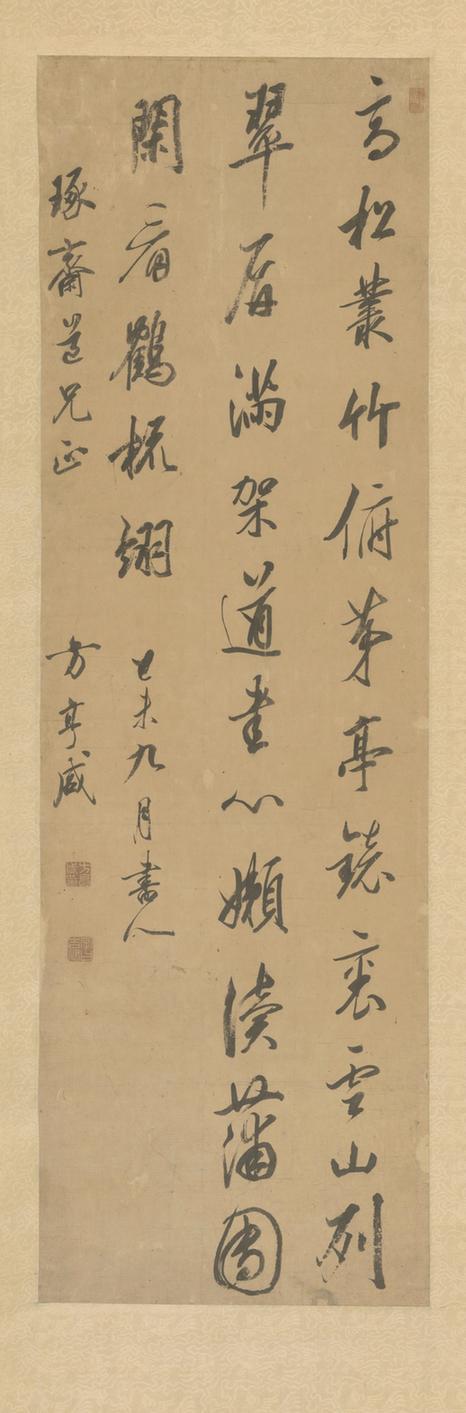 高松叢竹俯茅亭鏡裏雲山列
翠屏滿架道書心嬾讀蒲團
閑看鶴梳翎 己未九月書人
琢齋道兄正 方亨咸